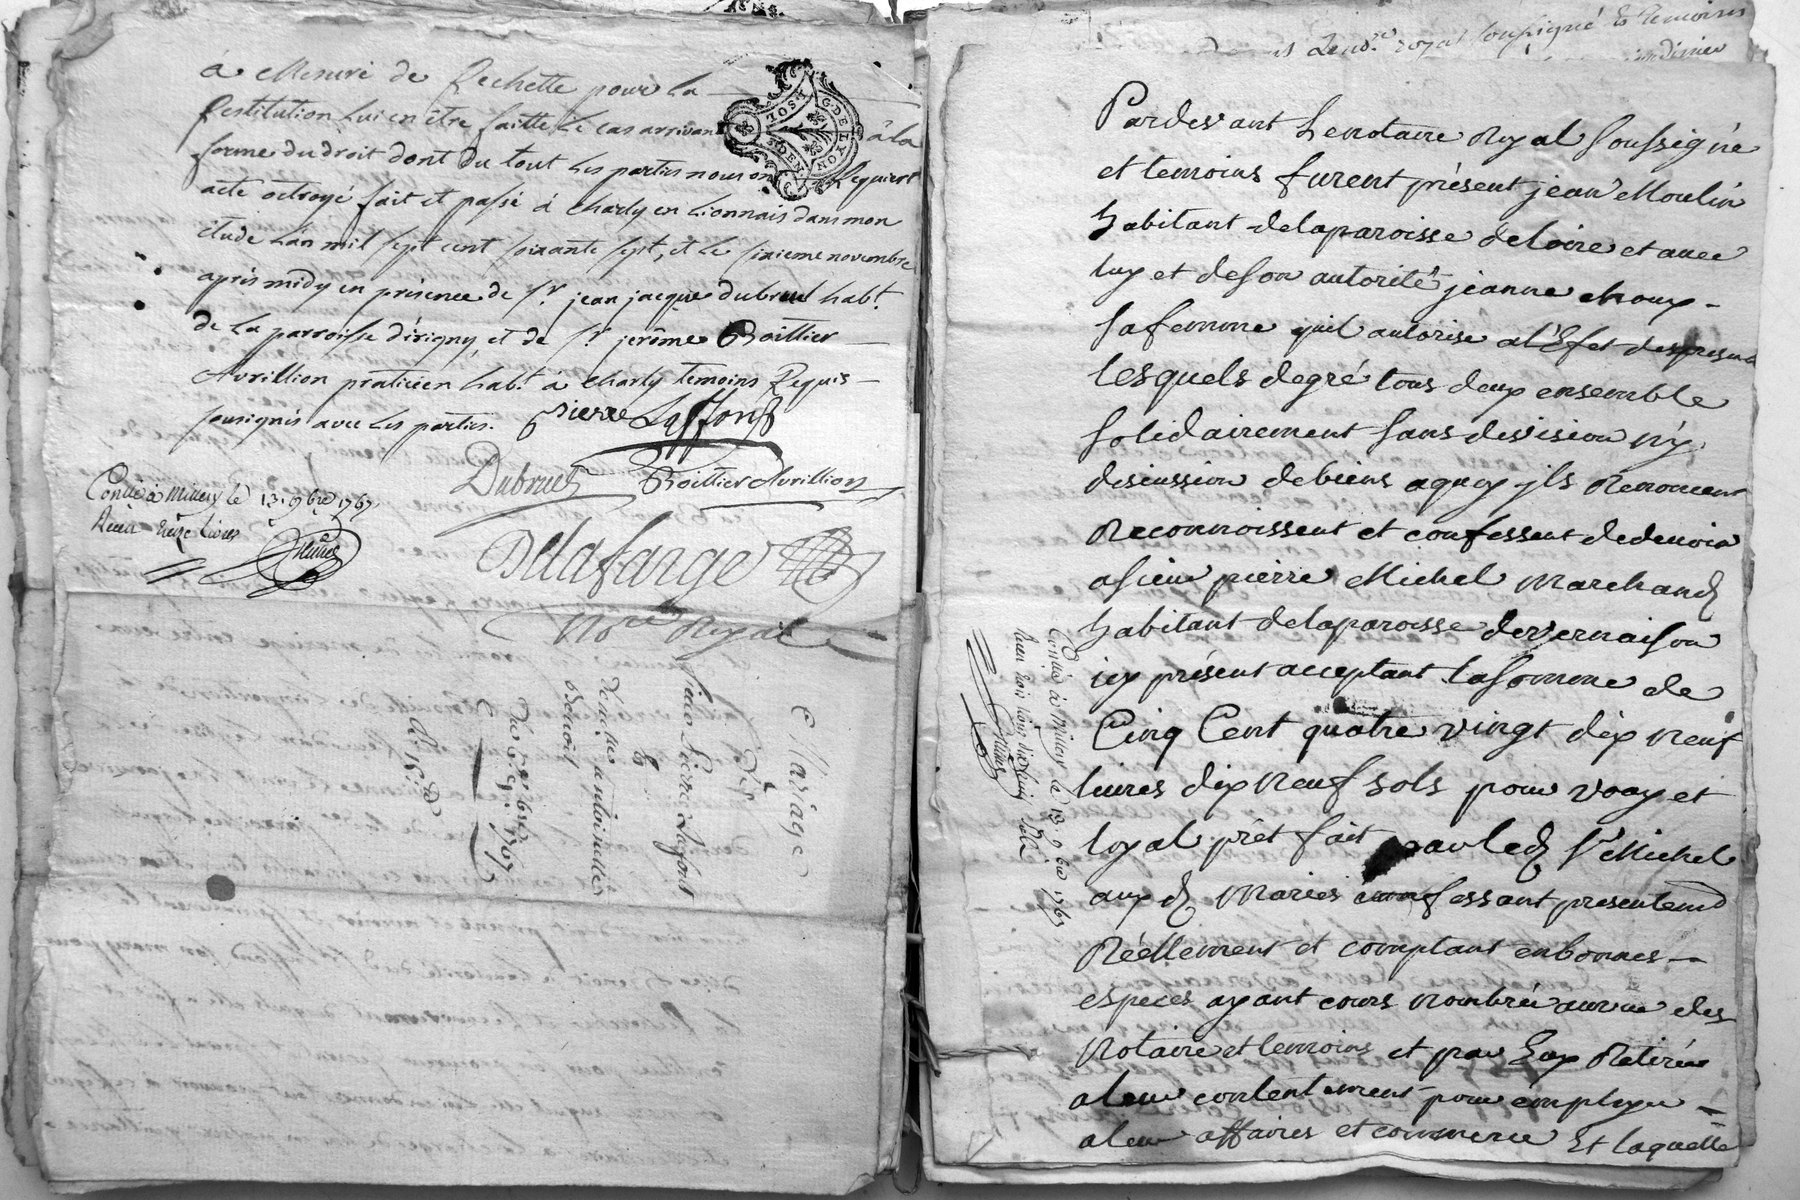 à Mesure de Rechette pour la
Restitution lui en être faitte le cas arrivant à la
forme du droit dont du tout les parties nous ont Requis
acte octroyé fait et passé à charly en Lionnais dans mon
étude L'an mil sept cent soixante sept, et le sixieme novembre
apris midy en présence de Sr. jean jacque dubreul habt.
de la parroisse d'irigny, et de Sr. jerôme Boittier
Avrillion praticien habt. à charly temoins Requis
sousignés avec les parties. Pierre Laffont
Dubruel Boittier Avrillion
Conllé à Millery le 13. 9bre 1767
Recu treize livres
Delafarge
Nore Royal
Mariage
des
Sieur Pierre Lafont
&
demlle antoinette
Benoit
du 6e. 9bre. 1767
Royal soussigné & temoins
Pardevant Le notaire Royal soussigné
et temoins furent présent jean Moulin
habitant delaparoisse deloire et avec
luy et deson autorité jeanne choux
safemme quil autorise al'Efet despresent
lesquels degré tous deux ensemble
solidairement sans devision ny
discussion debiens aquoy ils Renoncent
Reconnoissent et confessent dedevoir
asieur pierre Michel Marchand
habitant delaparoisse deVernaison
icy présent acceptant lasomme de
Cinq Cent quatre vingt dix neuf
livres dix neuf sols pour vray et
loyal prêt fait parled Sr Michel
aux d Mariés confessant presentemt
Réellement et comptant enbonnes
especes ayant cours nombrée aurue des
Notaire et temoins et par Eux Retirée
aleur contentement pour employer
aleur affaires et commerce Et laquelle
Conllé à Millery le 13. 9bre 1767